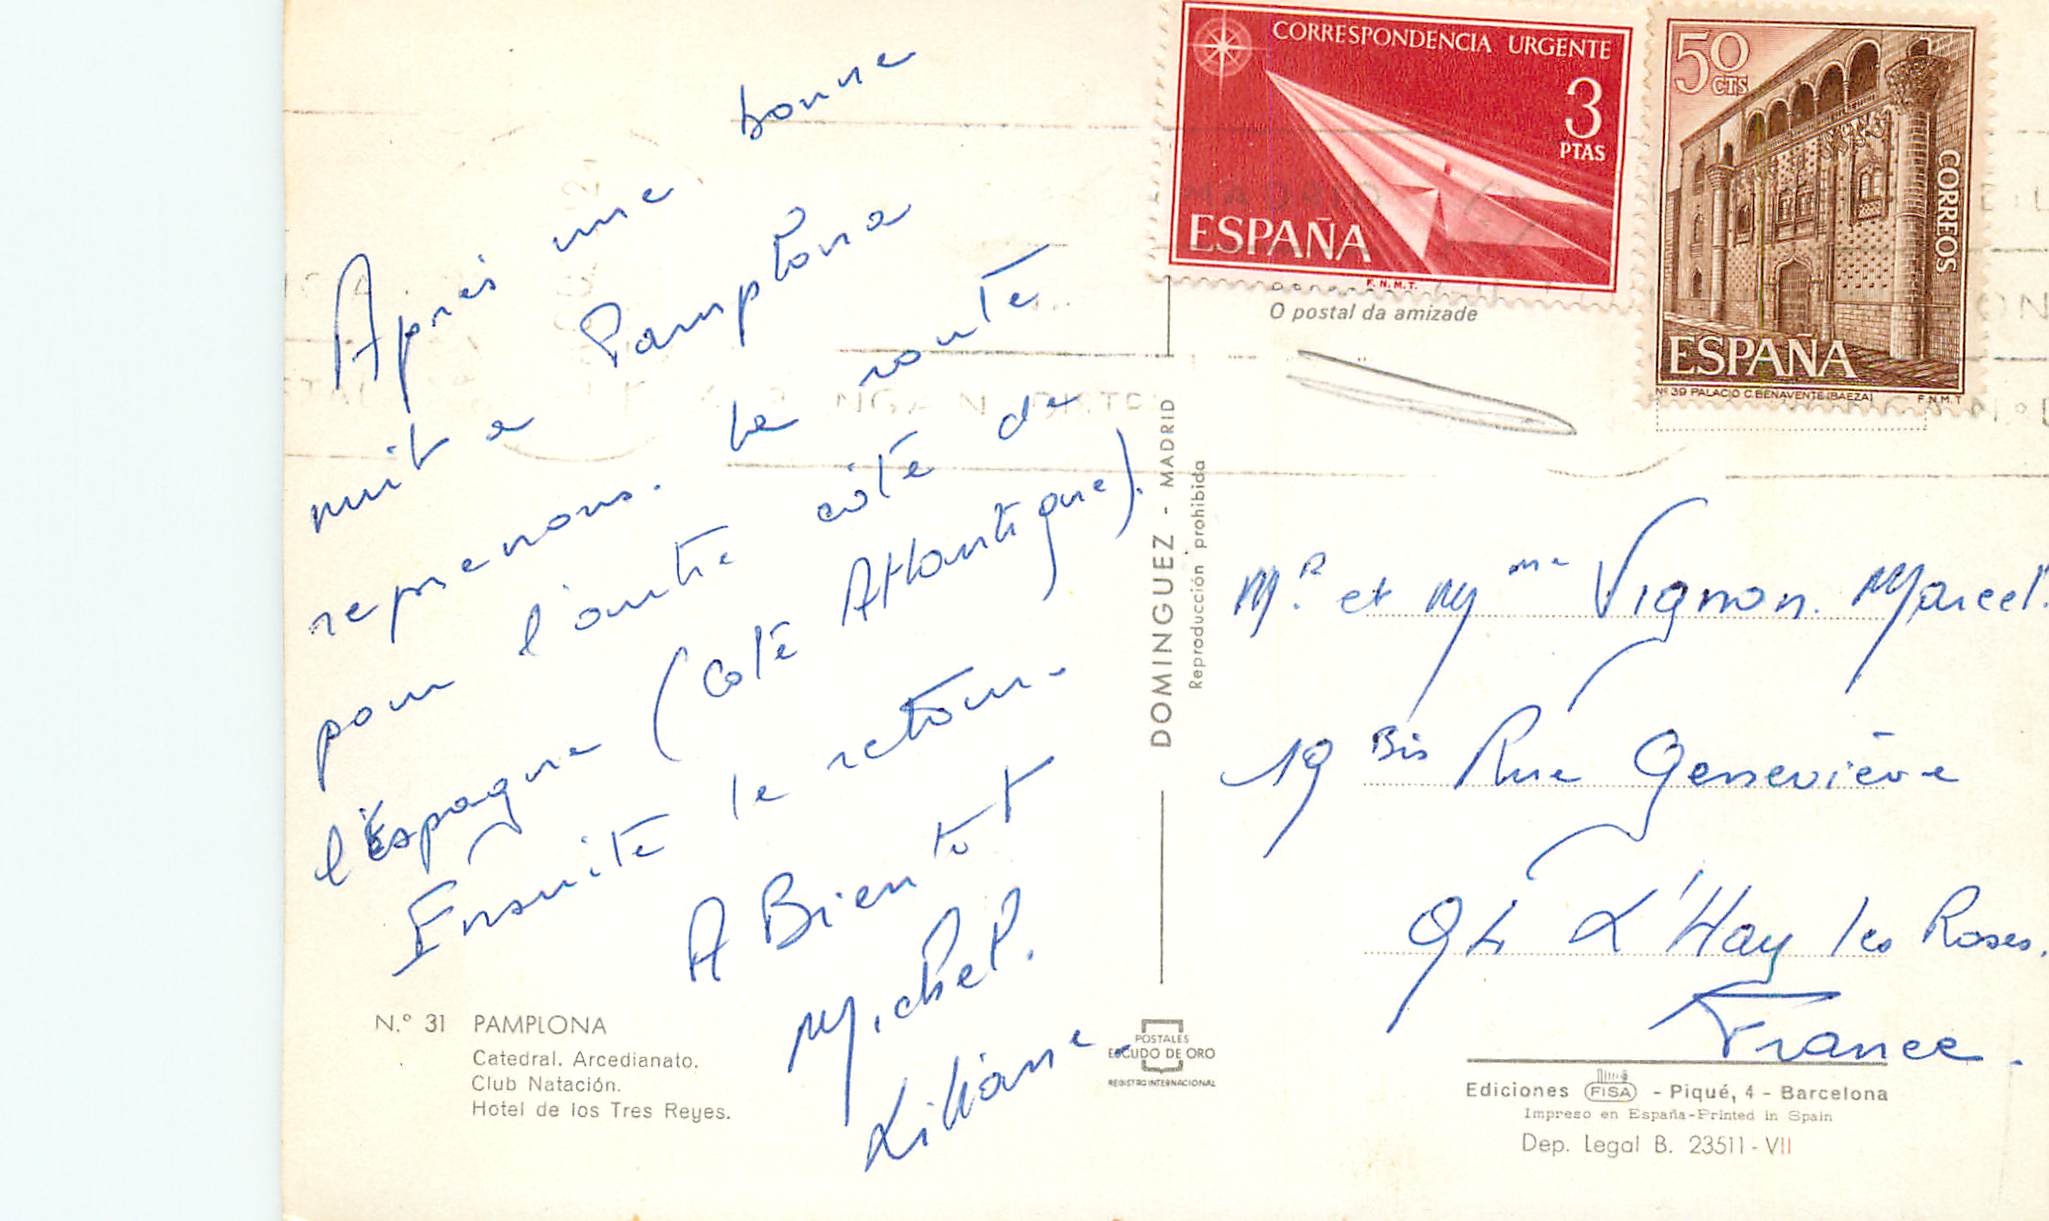 Après une bonne
nuit a Pamplona
reprenons. la route
pour l'autre côté de
l'Espagne (coté Atlantique).
Ensuite le retour.
A Bientot
Michel.
Liliane.
N.º 31 PAMPLONA
Catedral. Arcedianato.
Club Natación.
Hotel de los Tres Reyes.
DOMINGUEZ - MADRID
Reproducción prohibida
POSTALES
ESCUDO DE ORO
REGISTRO INTERNACIONAL
CORRESPONDENCIA URGENTE
3
PTAS
ESPAÑA
F.N.M.T.
50
CTS
CORREOS
ESPAÑA
Nº 39 PALACIO C. BENAVENTE (BAEZA) F.N.M.T
MADRID
O postal da amizade
Mr. et Mme Vignon. Marcel.
19 Bis Rue Geneviève
94 L'Hay les Roses.
France.
Ediciones FISA - Piqué, 4 - Barcelona
Impreso en España-Printed in Spain
Dep. Legal B. 23511-VII